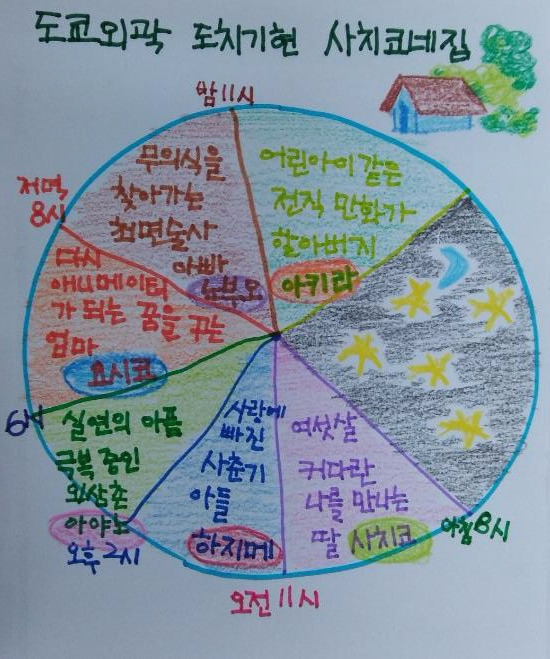 도쿄외곽 도치기현 사치코네집
밤 11시
어린아이 같은
전직 만화가
할아버지
아키라
무의식을
찾아가는
최면술사
아빠
노부오
저녁
8시
다시
애니메이터
가 되는 꿈을 꾸는
엄마
요시코
6시
실연의 아픔
극복 중인
외삼촌
아야노
오후 2시
사랑에
빠진
사춘기
아들
하지메
오전 11시
여섯살
커다란
나를 만나는
딸 사치코
아침 8시